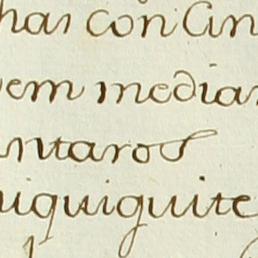 has con Cin
em media
ntaros
iquiguite